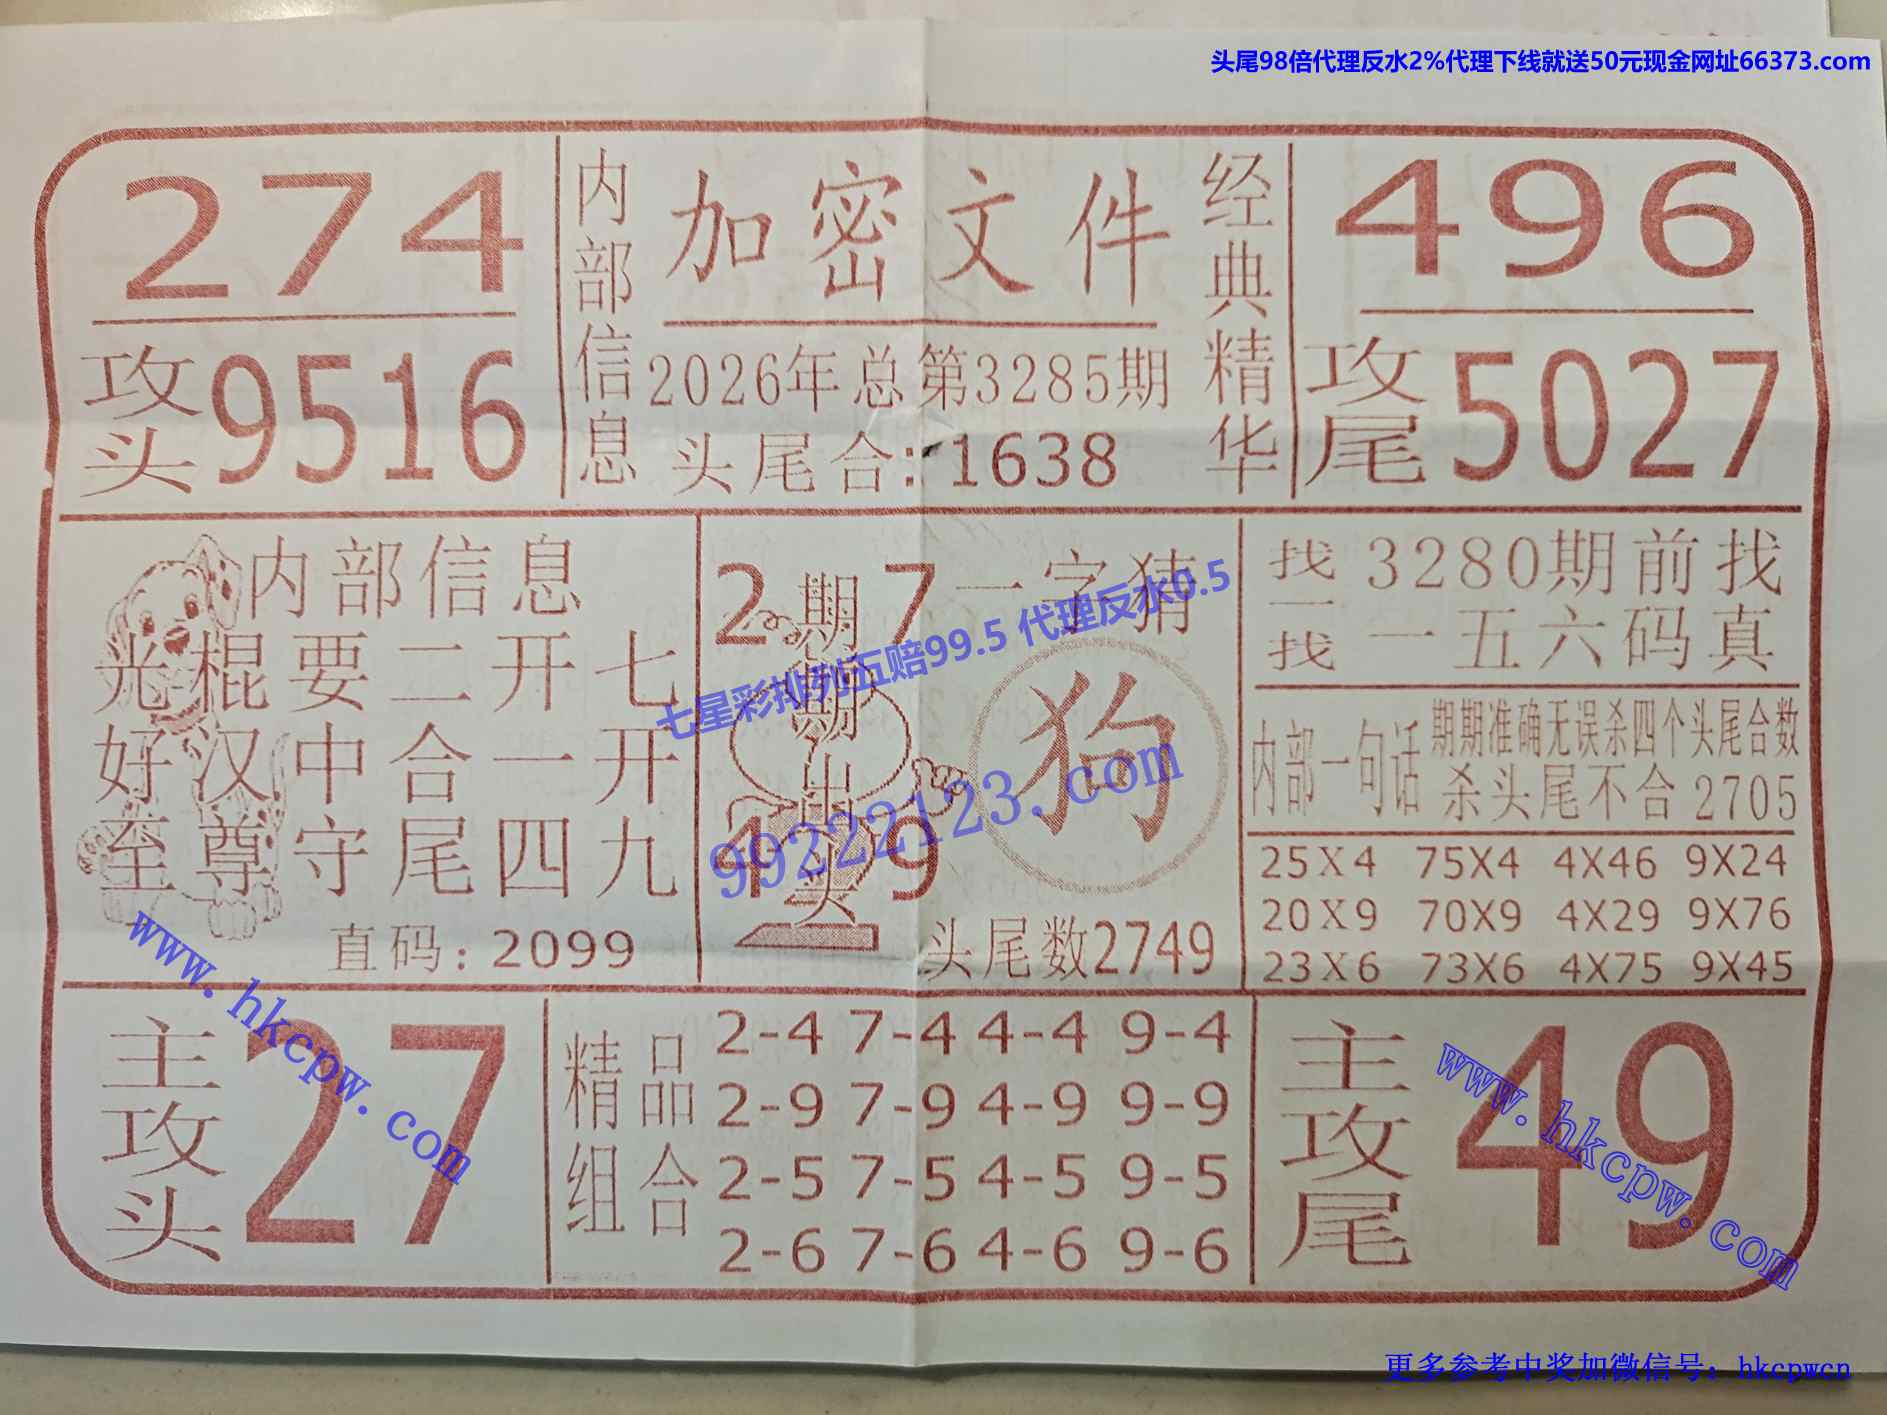 头尾98倍代理反水2%代理下线就送50元现金网址66373.com
274
攻头9516
内部信息
加密文件
2026年总第3285期
头尾合:1638
经典精华
496
攻尾5027
内部信息
光棍要二开七
好汉中合一开
至尊守尾四九
直码:2099
2 7
期期出头
4 9
一字猜
狗
头尾数2749
七星彩排列五赔99.5 代理反水0.5
99222123.com
找一找
3280期前找
一五六码真
内部一句话
期期准确无误杀四个头尾合数
杀头尾不合2705
25X4 75X4 4X46 9X24
20X9 70X9 4X29 9X76
23X6 73X6 4X75 9X45
主攻头
27
www.hkcpw.com
精品组合
2-4 7-4 4-4 9-4
2-9 7-9 4-9 9-9
2-5 7-5 4-5 9-5
2-6 7-6 4-6 9-6
主攻尾
49
www.hkcpw.com
更多参考中奖加微信号：hkcpwcn